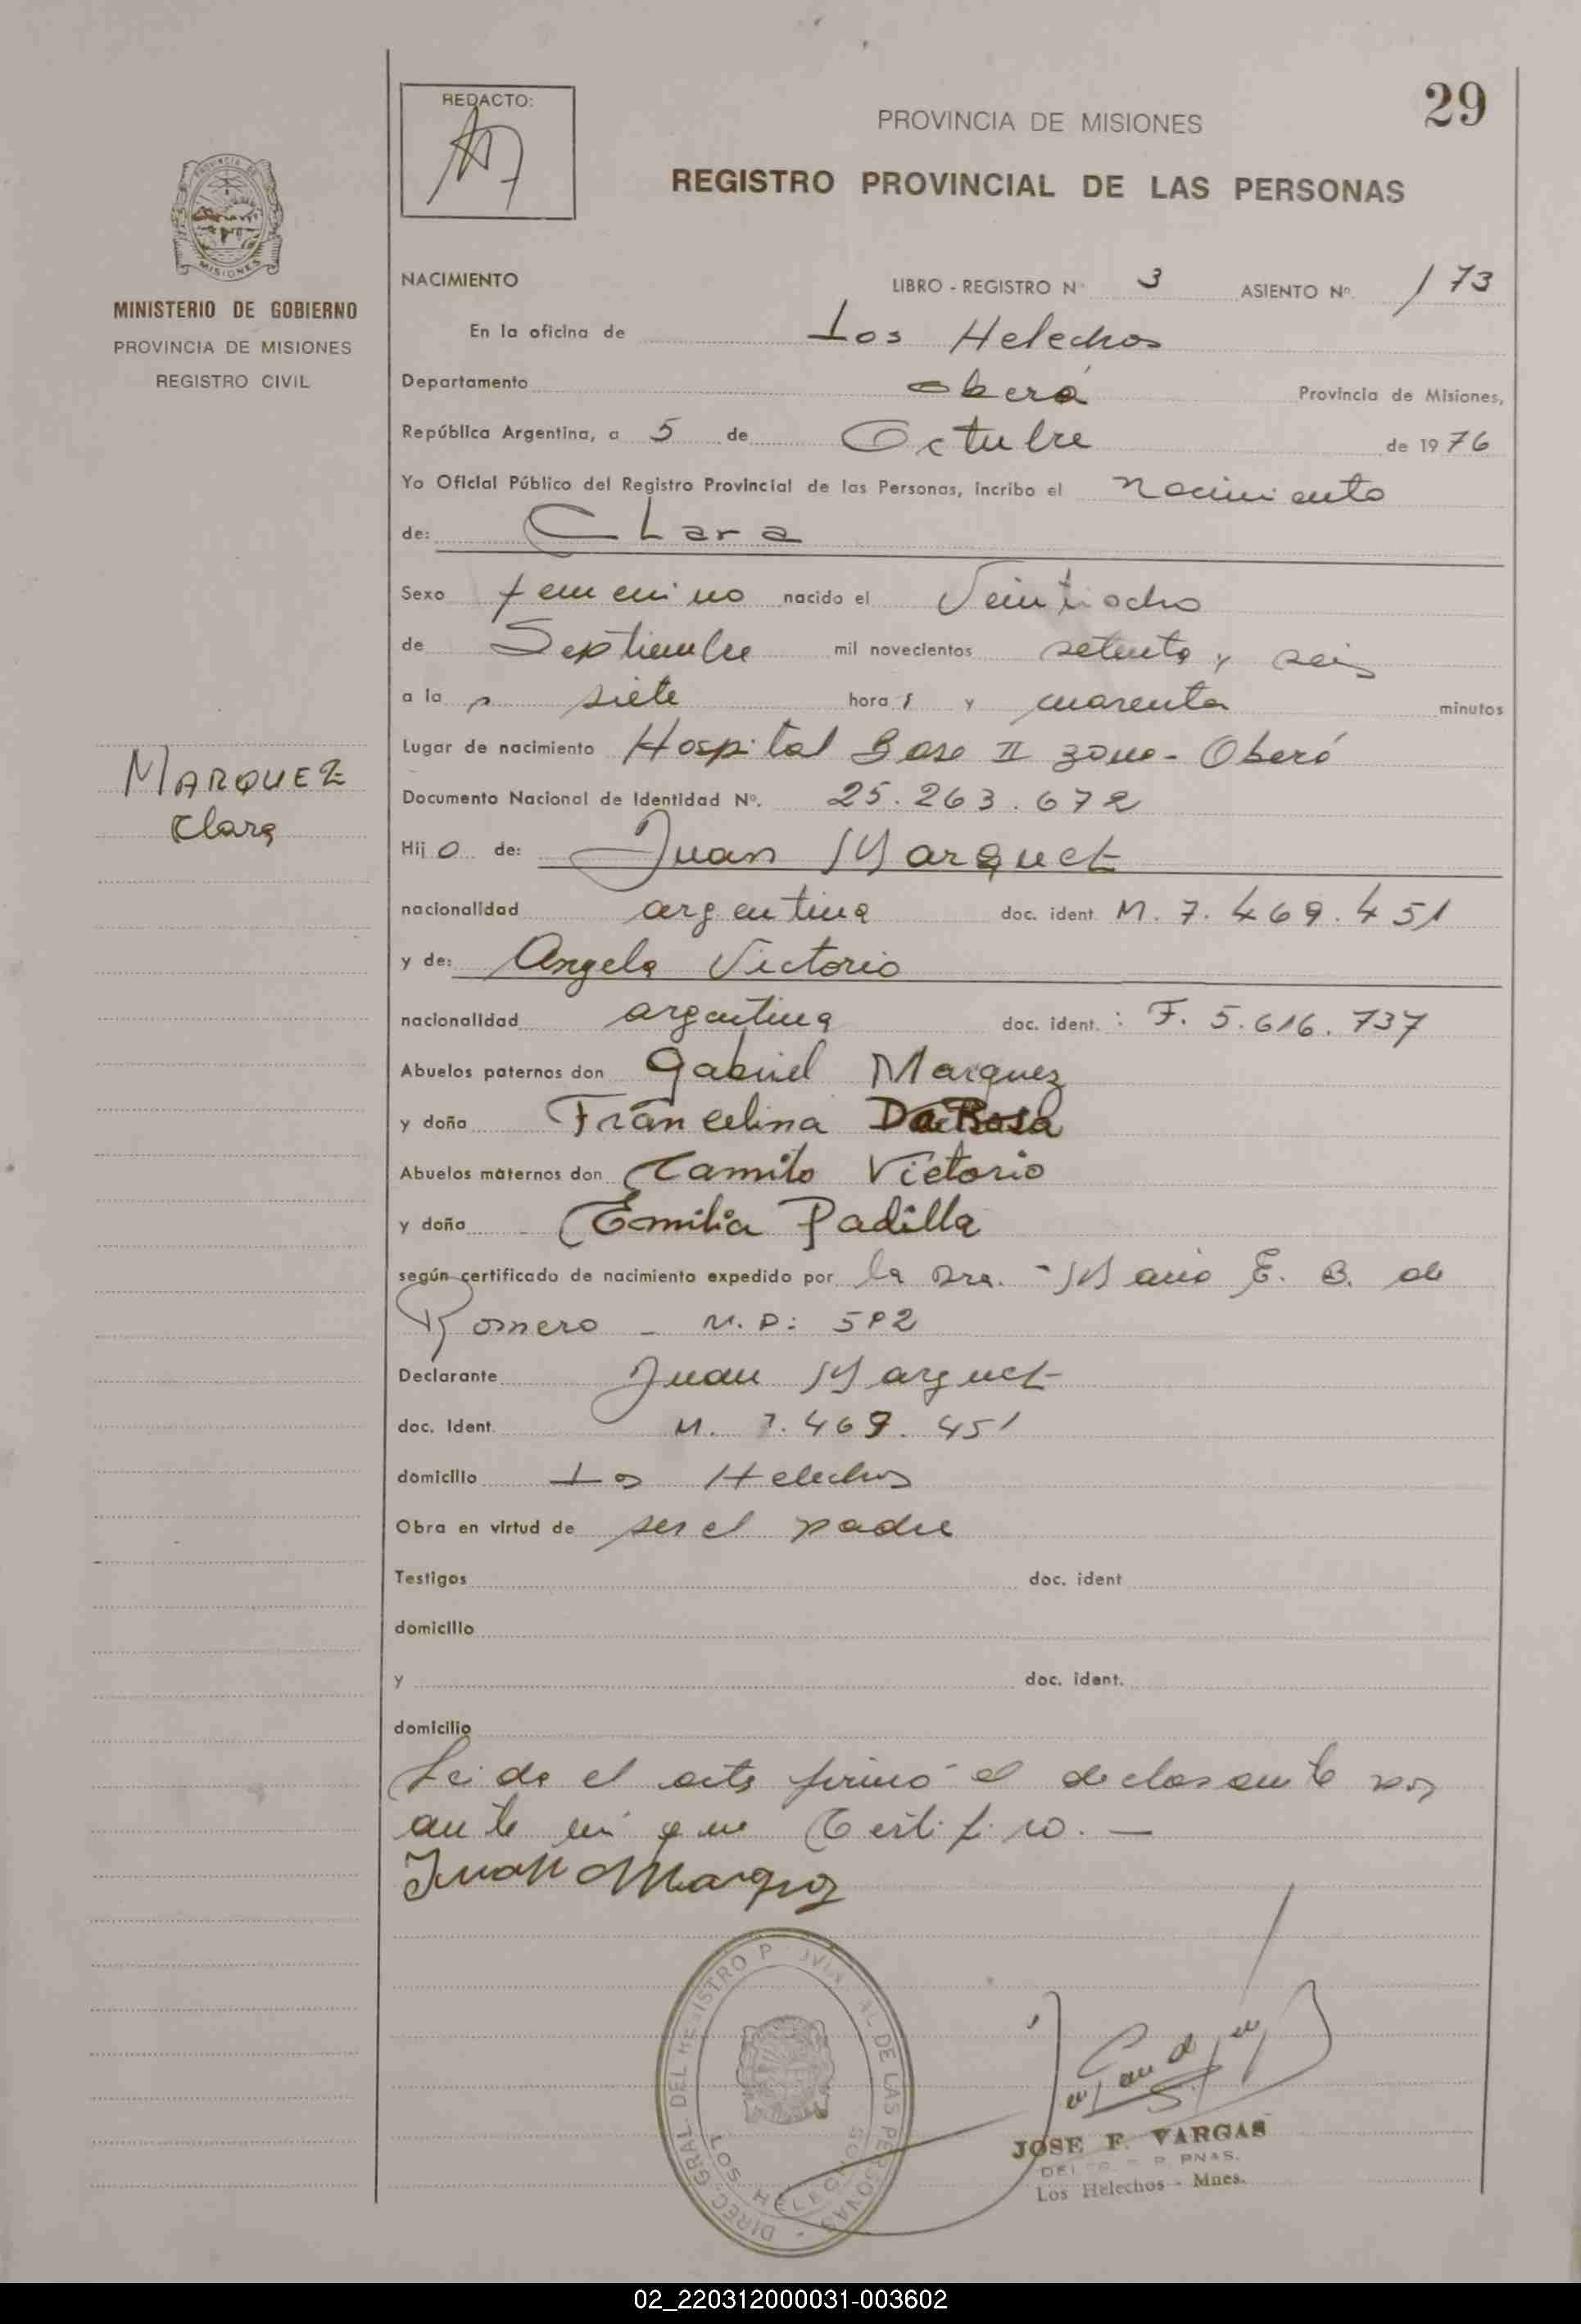 29
REDACTO:
PROVINCIA DE MISIONES
REGISTRO PROVINCIAL DE LAS PERSONAS
MISIONES
MINISTERIO DE GOBIERNO
PROVINCIA DE MISIONES
REGISTRO CIVIL
MARQUEZ
Clara
NACIMIENTO LIBRO - REGISTRO Nº 3 ASIENTO Nº 173
En la oficina de Los Helechos
Departamento oberá Provincia de Misiones,
República Argentina, a 5 de Octubre de 1976
Yo Oficial Público del Registro Provincial de las Personas, incribo el nacimiento
de: Clara
Sexo femenino nacido el Veintiocho
de Septiembre mil novecientos setenta y seis
a la s siete hora s y cuarenta minutos
Lugar de nacimiento Hospital Base II zona - Oberá
Documento Nacional de Identidad Nº. 25.263.672
Hij a de: Juan Marquez
nacionalidad argentina doc. ident. M. 7.469.451
y de: Angela Victorio
nacionalidad argentina doc. ident. : F. 5.616.737
Abuelos paternos don Gabriel Marquez
y doña Francelina Da Rosa
Abuelos maternos don Camilo Victorio
y doña Emilia Padilla
según certificado de nacimiento expedido por la Dra. - Maria E. B. de
Romero - M.P: 592
Declarante Juan Marquez
doc. Ident. M. 7.469.451
domicilio Los Helechos
Obra en virtud de ser el padre
Testigos doc. ident
domicilio
y doc. ident.
domicilio
Leida el acta firmó el declarante por
ante mi que Certifico. —
Juan Marquez
DIREC. GRAL. DEL REGISTRO PROVINCIAL DE LAS PERSONAS
LOS HELECHOS
JOSE F. VARGAS
Los Helechos - Mnes.
02_220312000031-003602